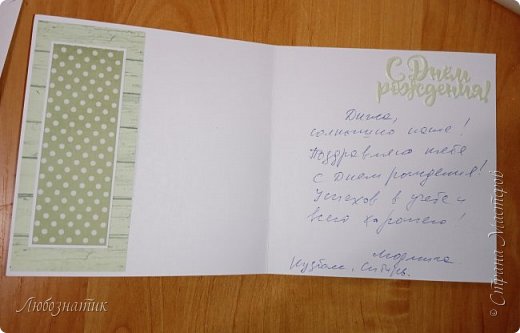 С Днём
рождения!
солнышко наше!
Поздравляю тебя
с Днем рождения!
Успехов в учебе и
всего хорошего!
Людмила
Кузбасс, Сибирь.
Любознатик
© Страна Мастеров